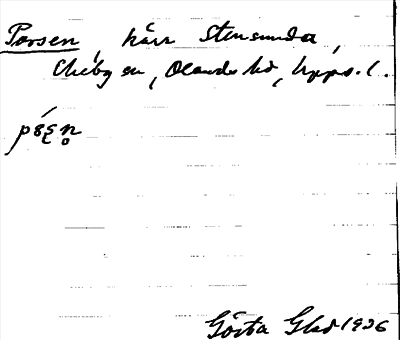 Porsen, kärr Stensunda,
Ekeby sn, Olands hd, Upps. l.
Gösta Glad 1926